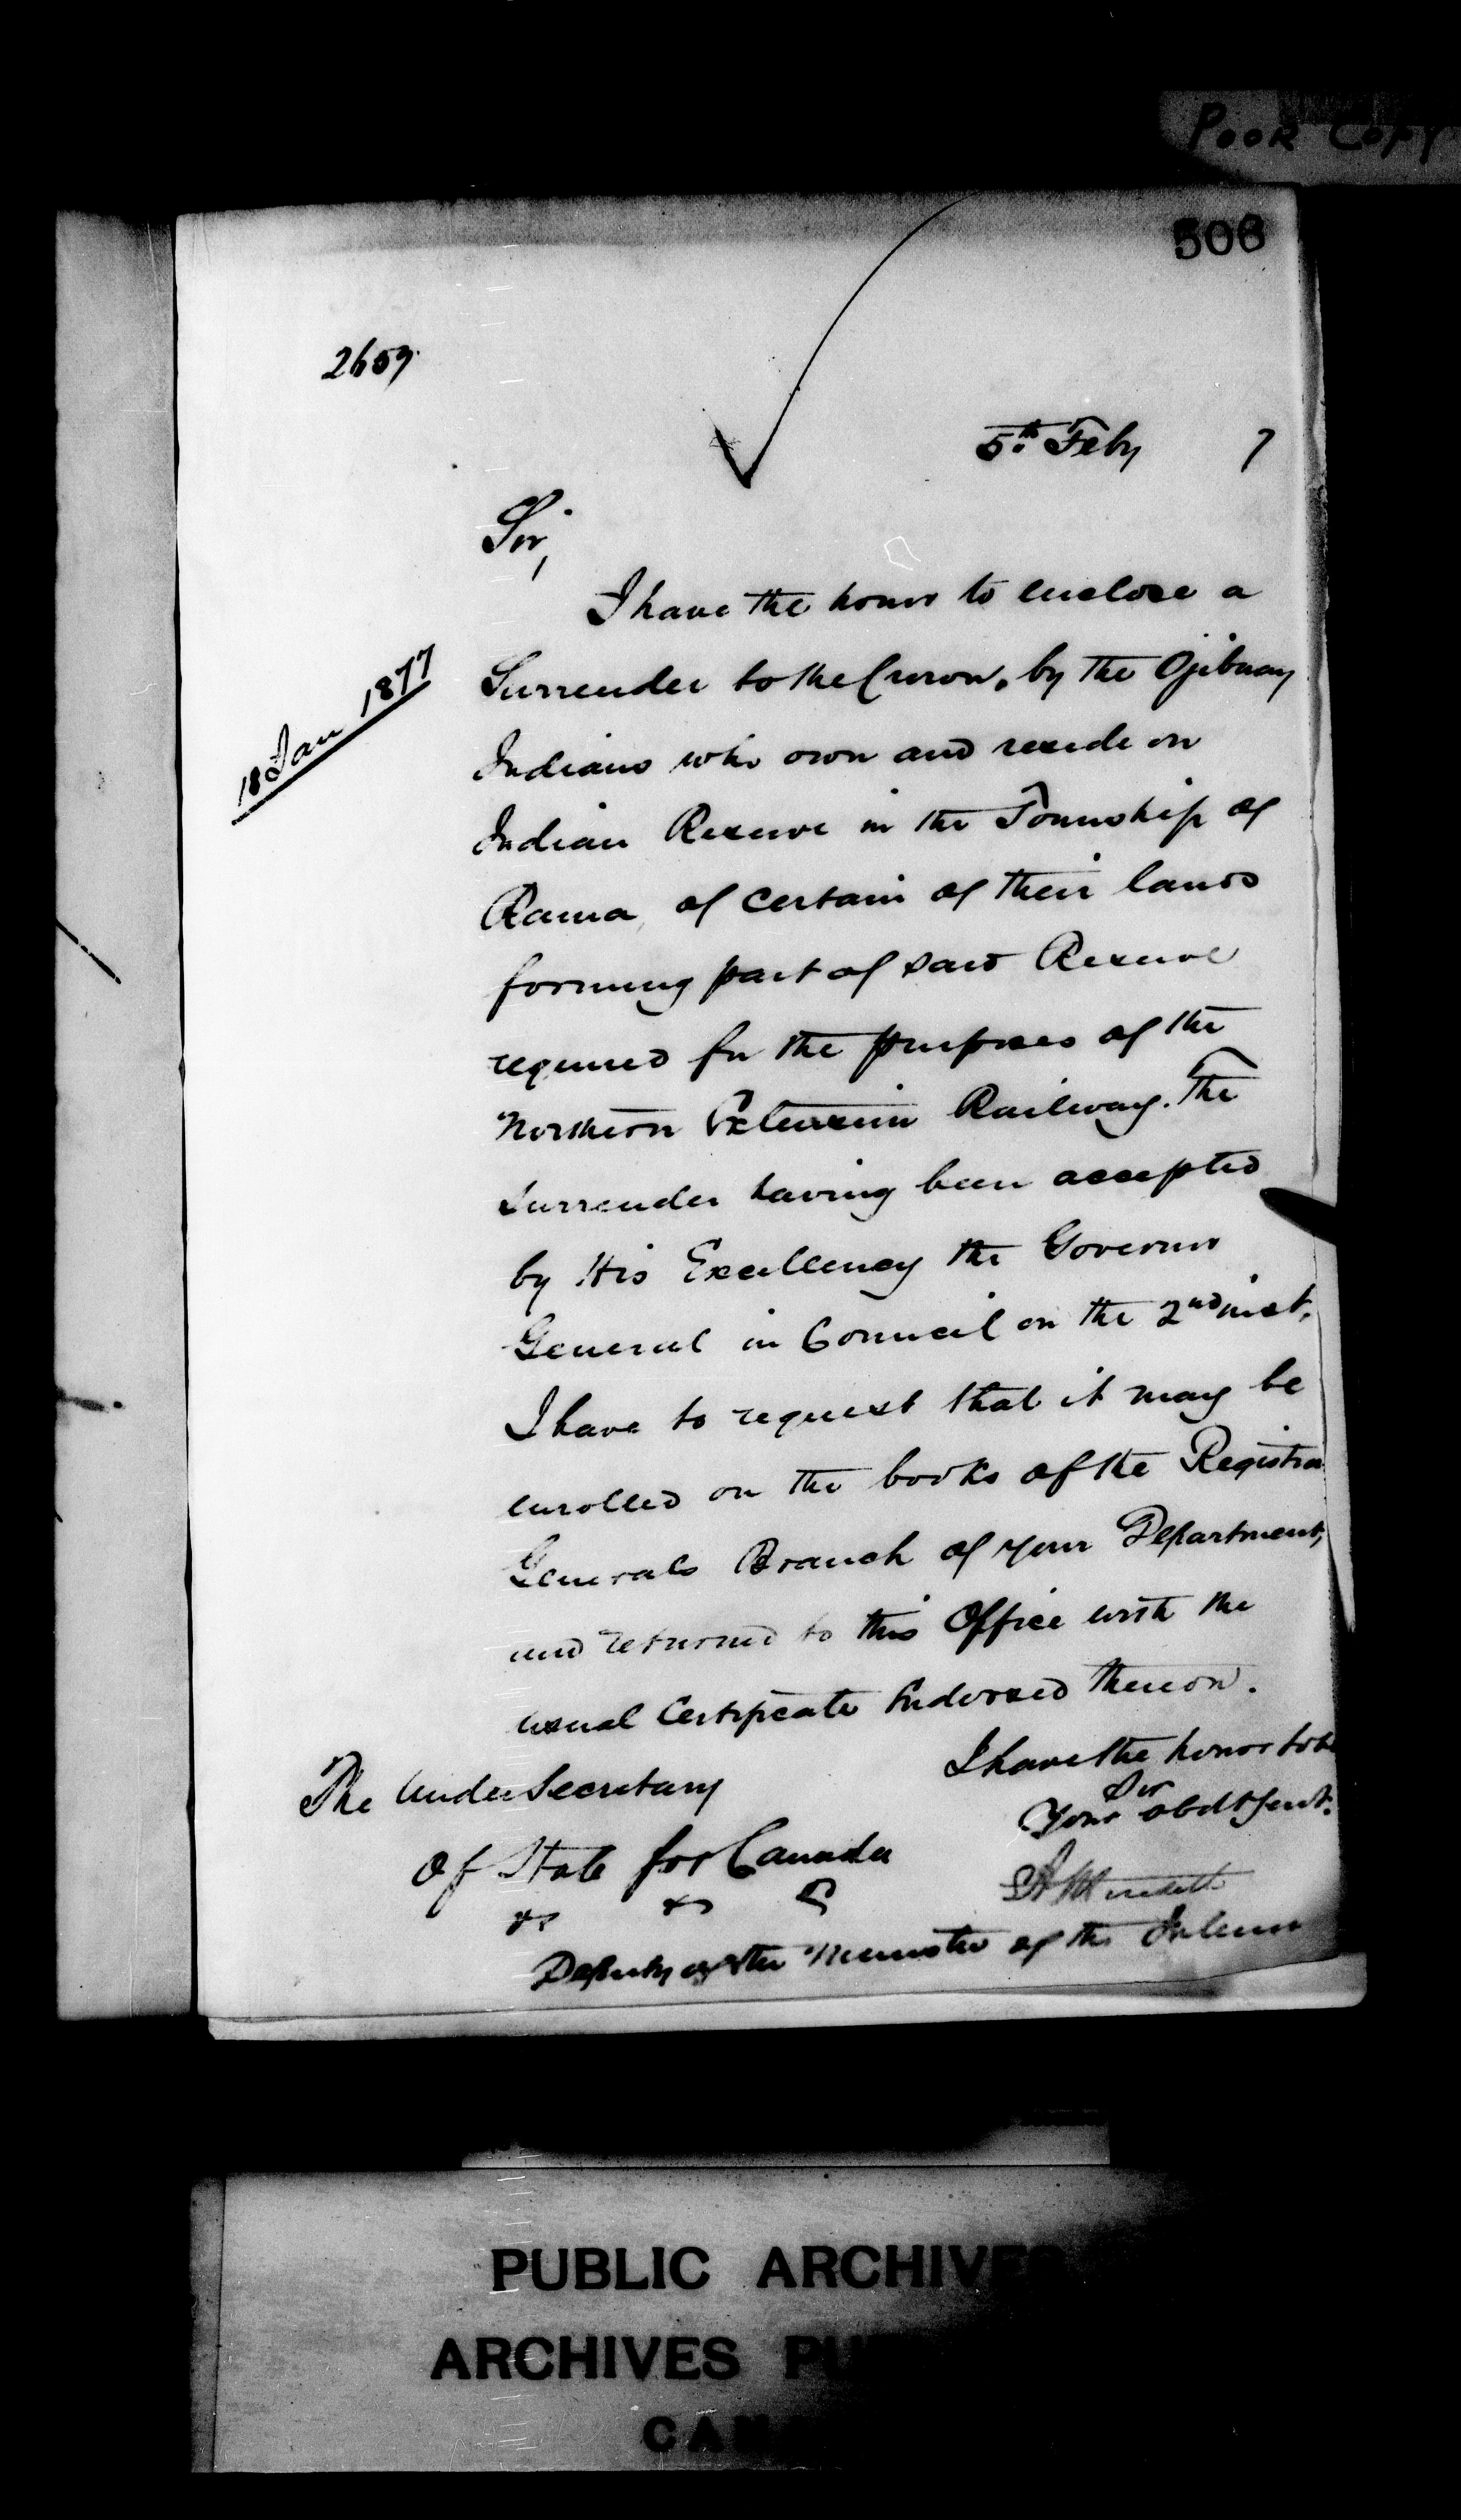 POOR COPY
506
2659
5th. Feby 7
Sir,
I have the honor to enclose a
18 Jan 1877
Surrender to the Crown, by the Ojibway
Indians who own and reside on
Indian Reserve in the Township of
Rama, of certain of their lands
forming part of said Reserve
required for the purposes of the
Northern Extension Railway. The
surrender having been accepted
by His Excellency the Governor
General in Council on the 2nd inst.
I have to request that it may be
enrolled on the books of the Registrar
Generals Branch of your Department,
and returned to this Office with the
usual Certificate Endorsed thereon.
I have the honor to be
Sir
The Under Secretary
Your obdt Servt.
Of State for Canada
Meredith
Deputy of the Minister of the Interior
PUBLIC ARCHIVES
ARCHIVES PU
CAN